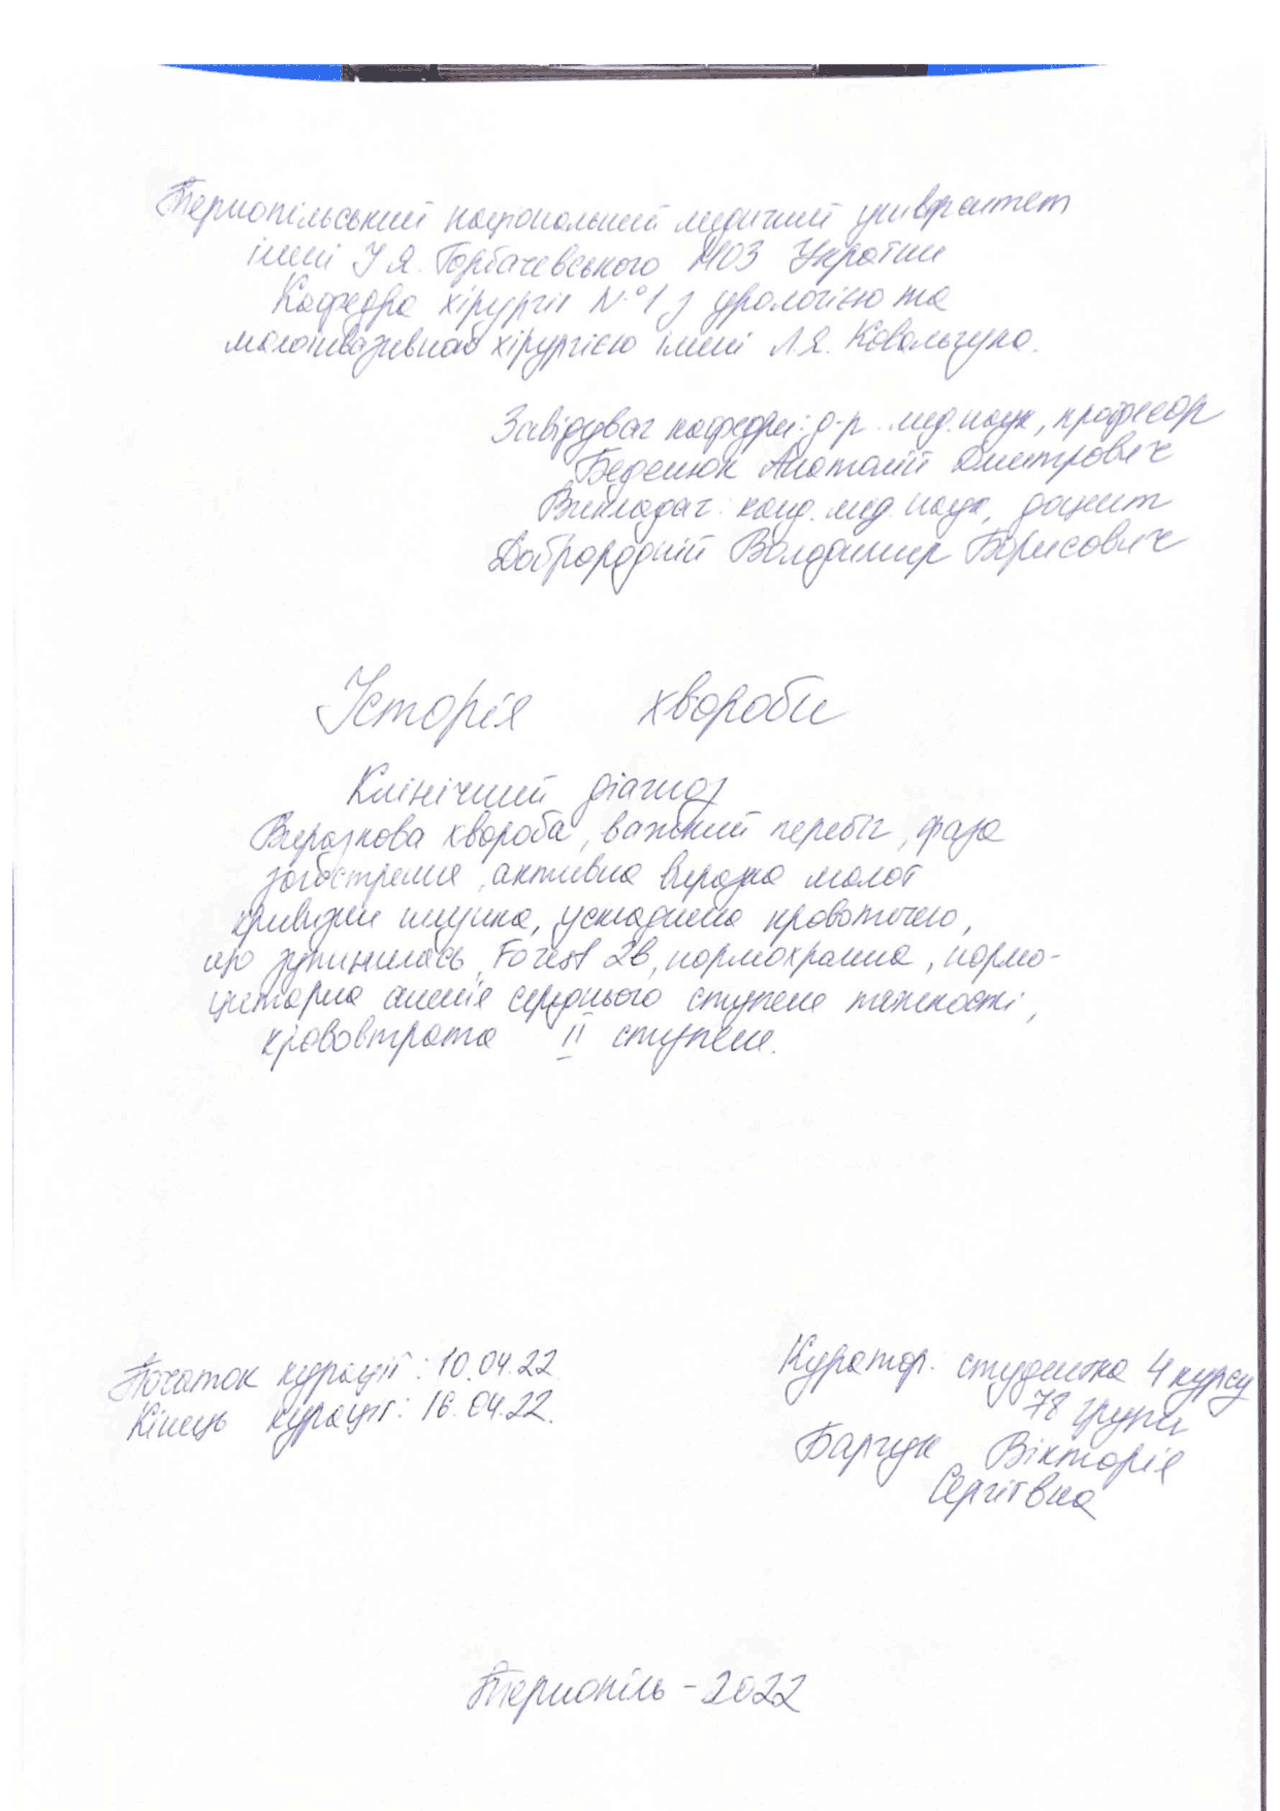 Тернопільський національний медичний університет
імені І.Я. Горбачевського МОЗ України
Кафедра хірургії №1 з урологією та
малоінвазивною хірургією імені Л.Я. Ковальчука.
Завідувач кафедри: д-р. мед. наук, професор
Беденюк Анатолій Дмитрович
Викладач: канд. мед. наук, доцент
Доброродній Володимир Борисович
Історія хвороби
Клінічний діагноз
Виразкова хвороба, важкий перебіг, фаза
загострення, активна виразка малої
кривизни шлунка, ускладнена кровотечею,
що зупинилась, Forest 2в, нормохромна, нормо-
цитарна анемія середнього ступеня тяжкості,
крововтрата II ступеня.
Початок курації: 10.04.22
Кінець курації: 16.04.22.
Куратор: студентка 4 курсу
78 групи
Барчук Вікторія
Сергіївна
Тернопіль - 2022